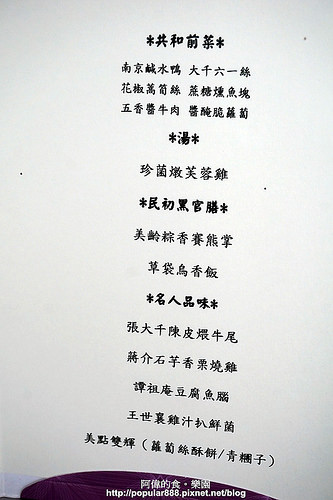 *共和前菜*
南京鹹水鴨 大千六一絲
花椒萵筍絲 蔗糖燻魚塊
五香醬牛肉 醬醃脆蘿蔔
*湯*
珍菌燉芙蓉雞
*民初黑官膳*
美齡粽香賽熊掌
草袋烏香飯
*名人品味*
張大千陳皮煨牛尾
蔣介石芋香栗燒雞
譚祖庵豆腐魚腦
王世襄雞汁扒鮮菌
美點雙輝（蘿蔔絲酥餅/青糰子）
阿偉的食。樂園
http://popular888.pixnet.net/blog